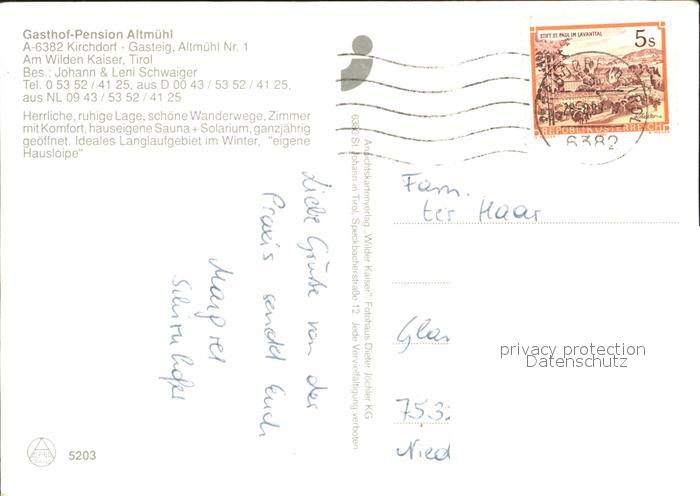 Gasthof-Pension Altmühl
A-6382 Kirchdorf - Gasteig, Altmühl Nr. 1
Am Wilden Kaiser, Tirol
Bes.: Johann & Leni Schwaiger
Tel. 0 53 52 / 41 25, aus D 00 43 / 53 52 / 41 25,
aus NL 09 43 / 53 52 / 41 25
Herrliche, ruhige Lage, schöne Wanderwege, Zimmer
mit Komfort, hauseigene Sauna + Solarium, ganzjährig
geöffnet. Ideales Langlaufgebiet im Winter, "eigene
Hausloipe"
STIFT ST. PAUL IM LAVANTTAL
5s
REPUBLIK ÖSTERREICH
6382
Liebe Grüße von der
Praxis sendet Euch
Margret
Ansichtskartenverlag „Wilder Kaiser“, Fotohaus Dieter Jöchler KG
6380 St. Johann in Tirol, Speckbacherstraße 12. Jede Vervielfältigung verboten
Fam.
ter Haar
Glas
753
Nied
privacy protection
Datenschutz
5203